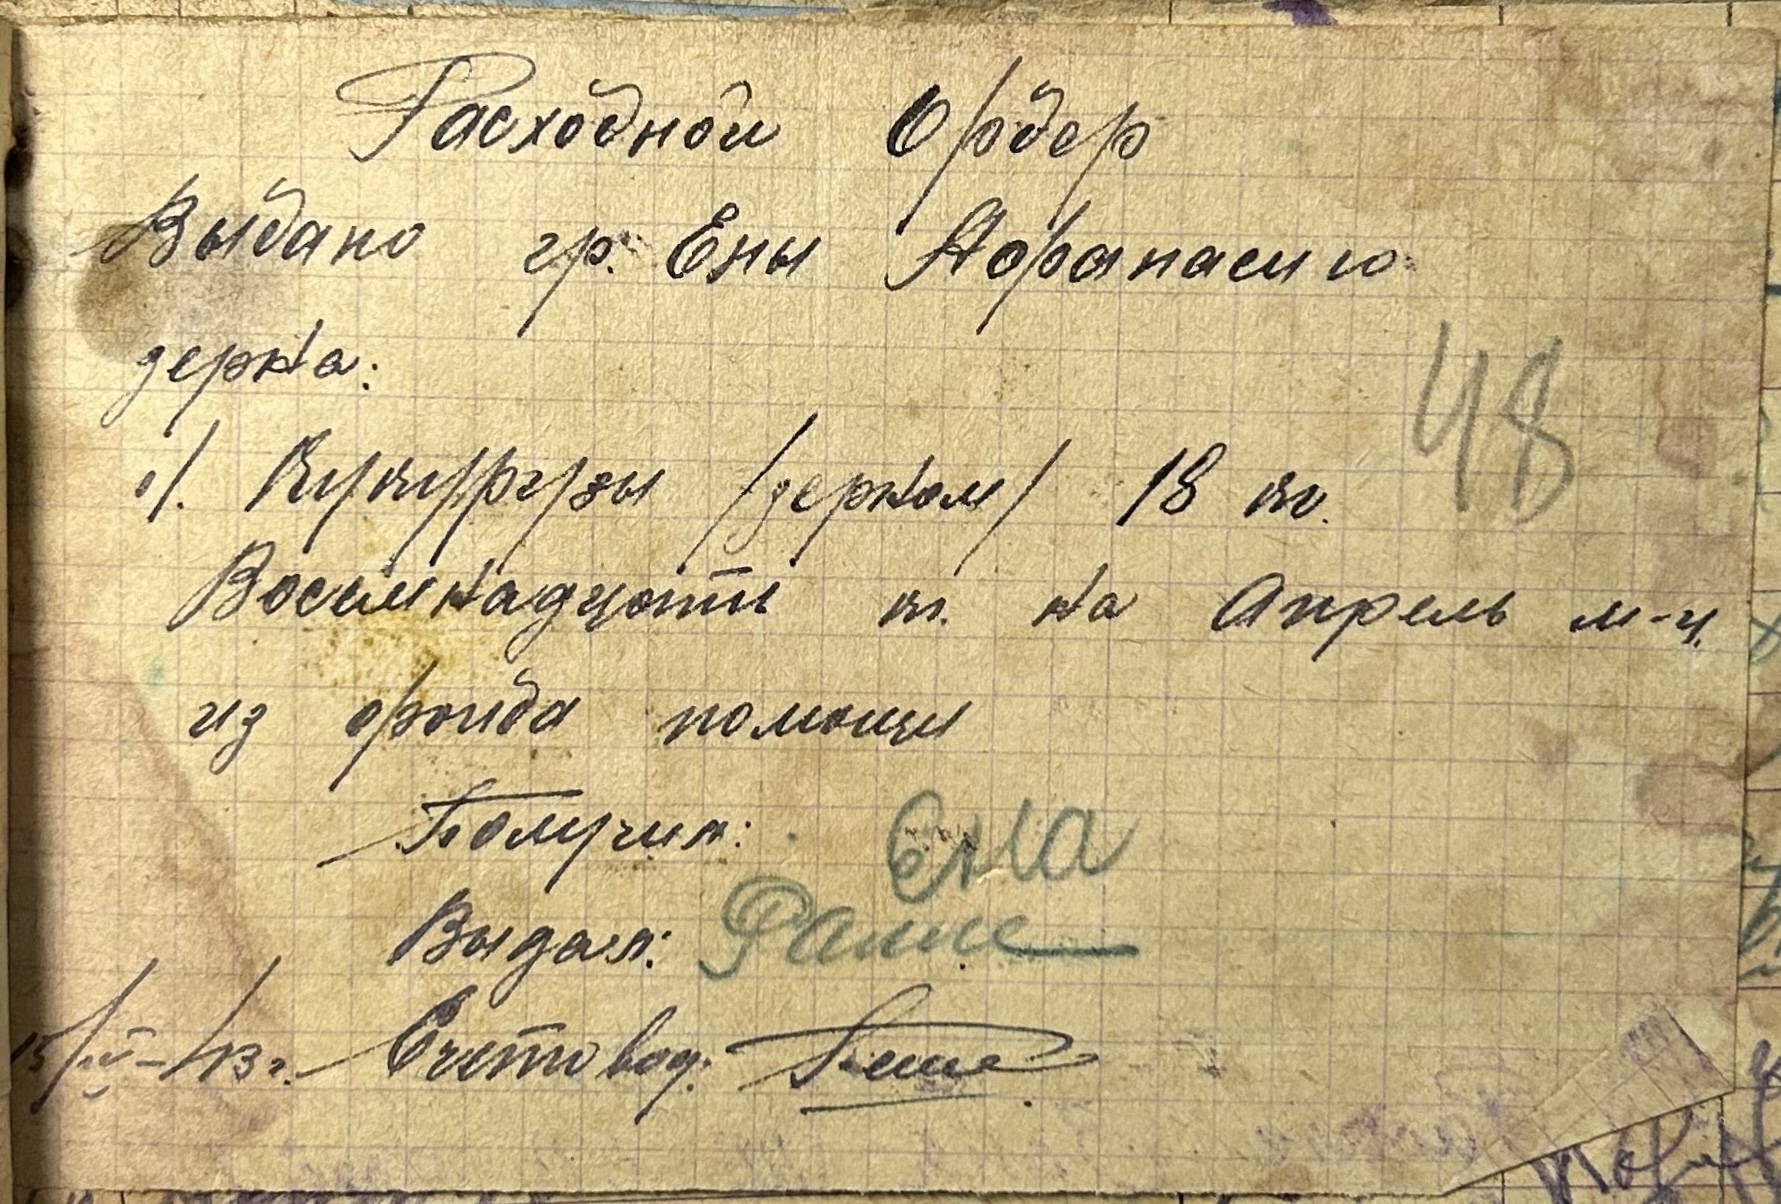 Расходной Ордер
Выдано гр. Ены Афанасию
зерна:
1/. Кукурузы /зерном/ 18 кг.
Восемнадцать кг. на Апрель м-ц.
из фонда помощи
48
Получил: Ена
Выдал:
15/IV-43г. Счетовод: